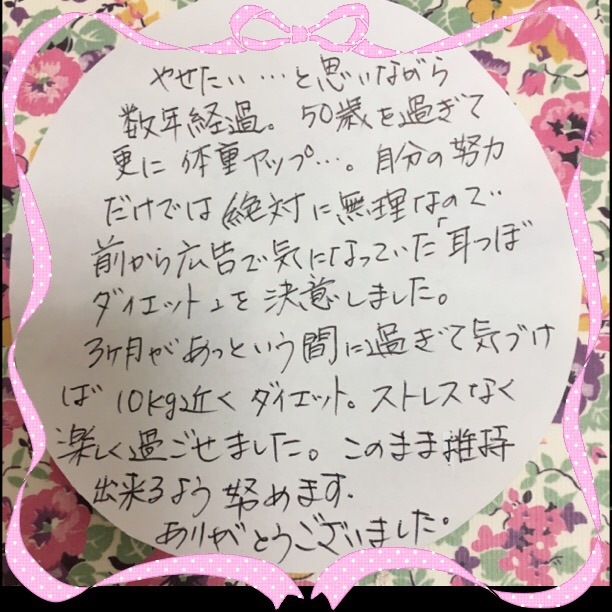 やせたい…と思いながら
数年経過。50歳を過ぎて
更に体重アップ…。自分の努力
だけでは絶対に無理なので
前から広告で気になっていた「耳つぼ
ダイエット」を決意しました。
3ヶ月があっという間に過ぎて気づけ
ば10kg近くダイエット。ストレスなく
楽しく過ごせました。このまま維持
出来るよう努めます.
ありがとうございました。